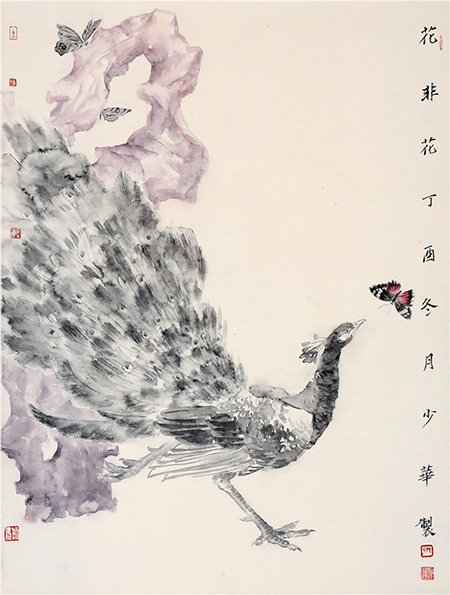 花非花丁酉冬月少華製